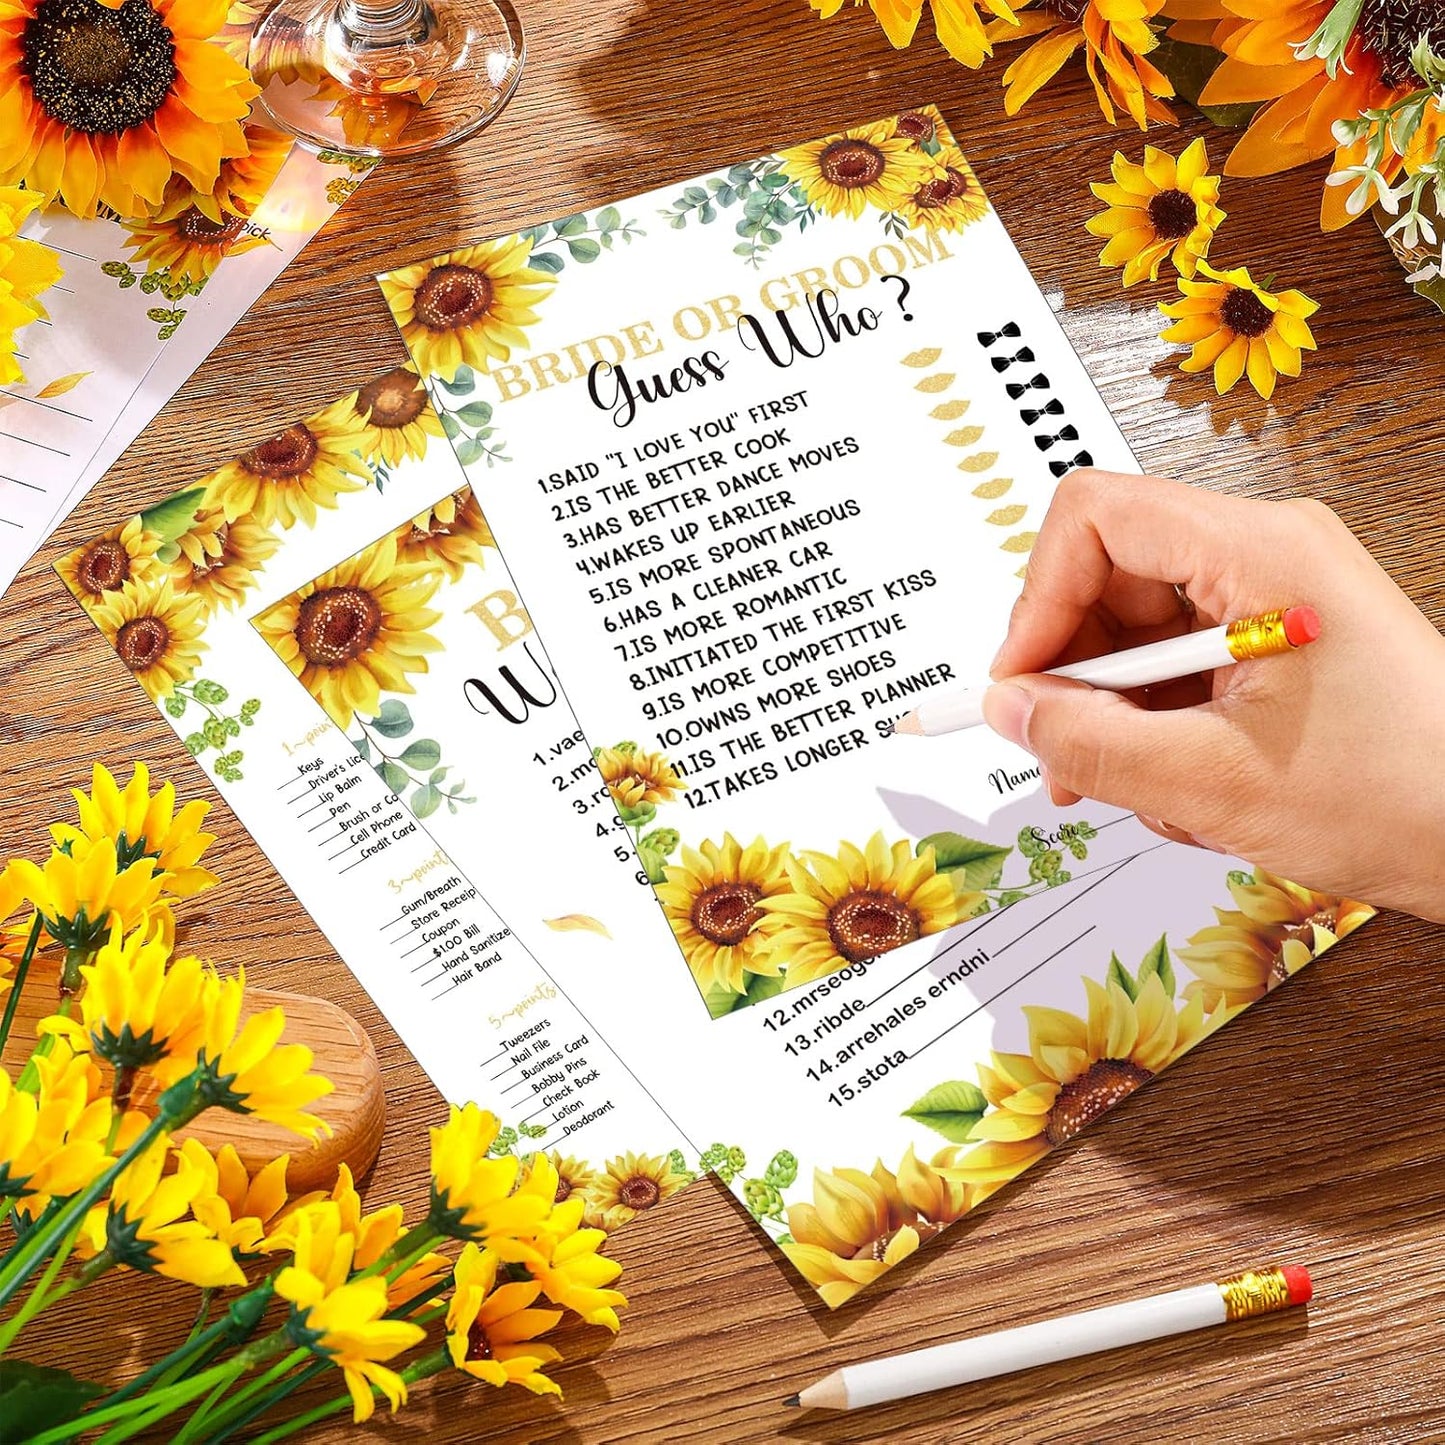 pick
BRIDE OR GROOM
Guess Who?
1.SAID "I LOVE YOU" FIRST
2.IS THE BETTER COOK
3.HAS BETTER DANCE MOVES
4.WAKES UP EARLIER
5.IS MORE SPONTANEOUS
6.HAS A CLEANER CAR
7.IS MORE ROMANTIC
8.INITIATED THE FIRST KISS
9.IS MORE COMPETITIVE
10.OWNS MORE SHOES
11.IS THE BETTER PLANNER
12.TAKES LONGER
Name
Score
B
W
1.vae
2.mo
3.ro
4.g
5.
6
12.mrseogo
13.ribde
14.arrehales erndni
15.stota
1~point
Keys
Driver's Lice
Lip Balm
Pen
Brush or Co
Cell Phone
Credit Card
3~point
Gum/Breath
Store Receip
Coupon
$1.00 Bill
Hand Sanitize
Hair Band
5~points
Tweezers
Nail File
Business Card
Bobby Pins
Check Book
Lotion
Deodorant